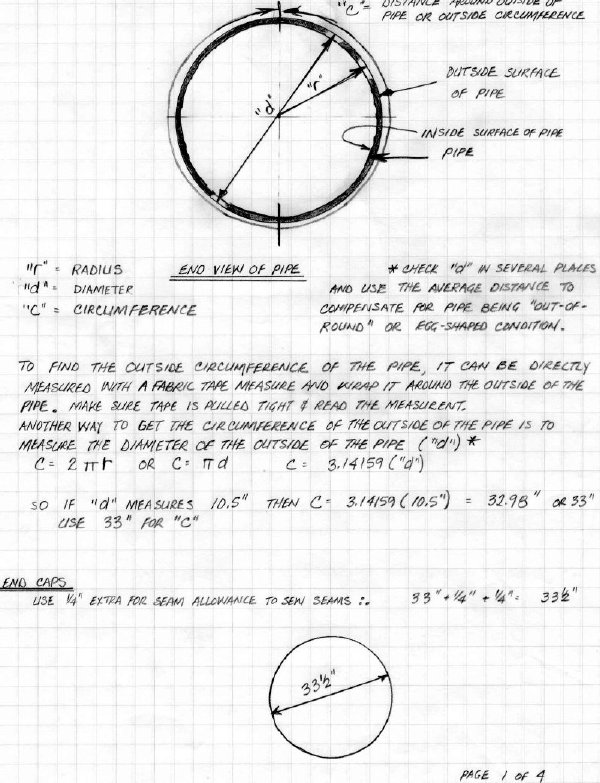 "C" = DISTANCE AROUND OUTSIDE OF
PIPE OR OUTSIDE CIRCUMFERENCE
"d"
"r"
OUTSIDE SURFACE
OF PIPE
INSIDE SURFACE OF PIPE
PIPE
"r" = RADIUS
"d" = DIAMETER
"C" = CIRCUMFERENCE
END VIEW OF PIPE
* CHECK "d" IN SEVERAL PLACES
AND USE THE AVERAGE DISTANCE TO
COMPENSATE FOR PIPE BEING "OUT-OF-
ROUND" OR EGG-SHAPED CONDITION.
TO FIND THE OUTSIDE CIRCUMFERENCE OF THE PIPE, IT CAN BE DIRECTLY
MEASURED WITH A FABRIC TAPE MEASURE AND WRAP IT AROUND THE OUTSIDE OF THE
PIPE. MAKE SURE TAPE IS PULLED TIGHT & READ THE MEASURENT.
ANOTHER WAY TO GET THE CIRCUMFERENCE OF THE OUTSIDE OF THE PIPE IS TO
MEASURE THE DIAMETER OF THE OUTSIDE OF THE PIPE ("d") *
C = 2 π r OR C = π d C = 3.14159 ("d")
SO IF "d" MEASURES 10.5" THEN C = 3.14159 (10.5") = 32.98" OR 33"
USE 33" FOR "C"
END CAPS
USE 1/4" EXTRA FOR SEAM ALLOWANCE TO SEW SEAMS :. 33" + 1/4" + 1/4" = 33 1/2"
33 1/2"
PAGE 1 OF 4